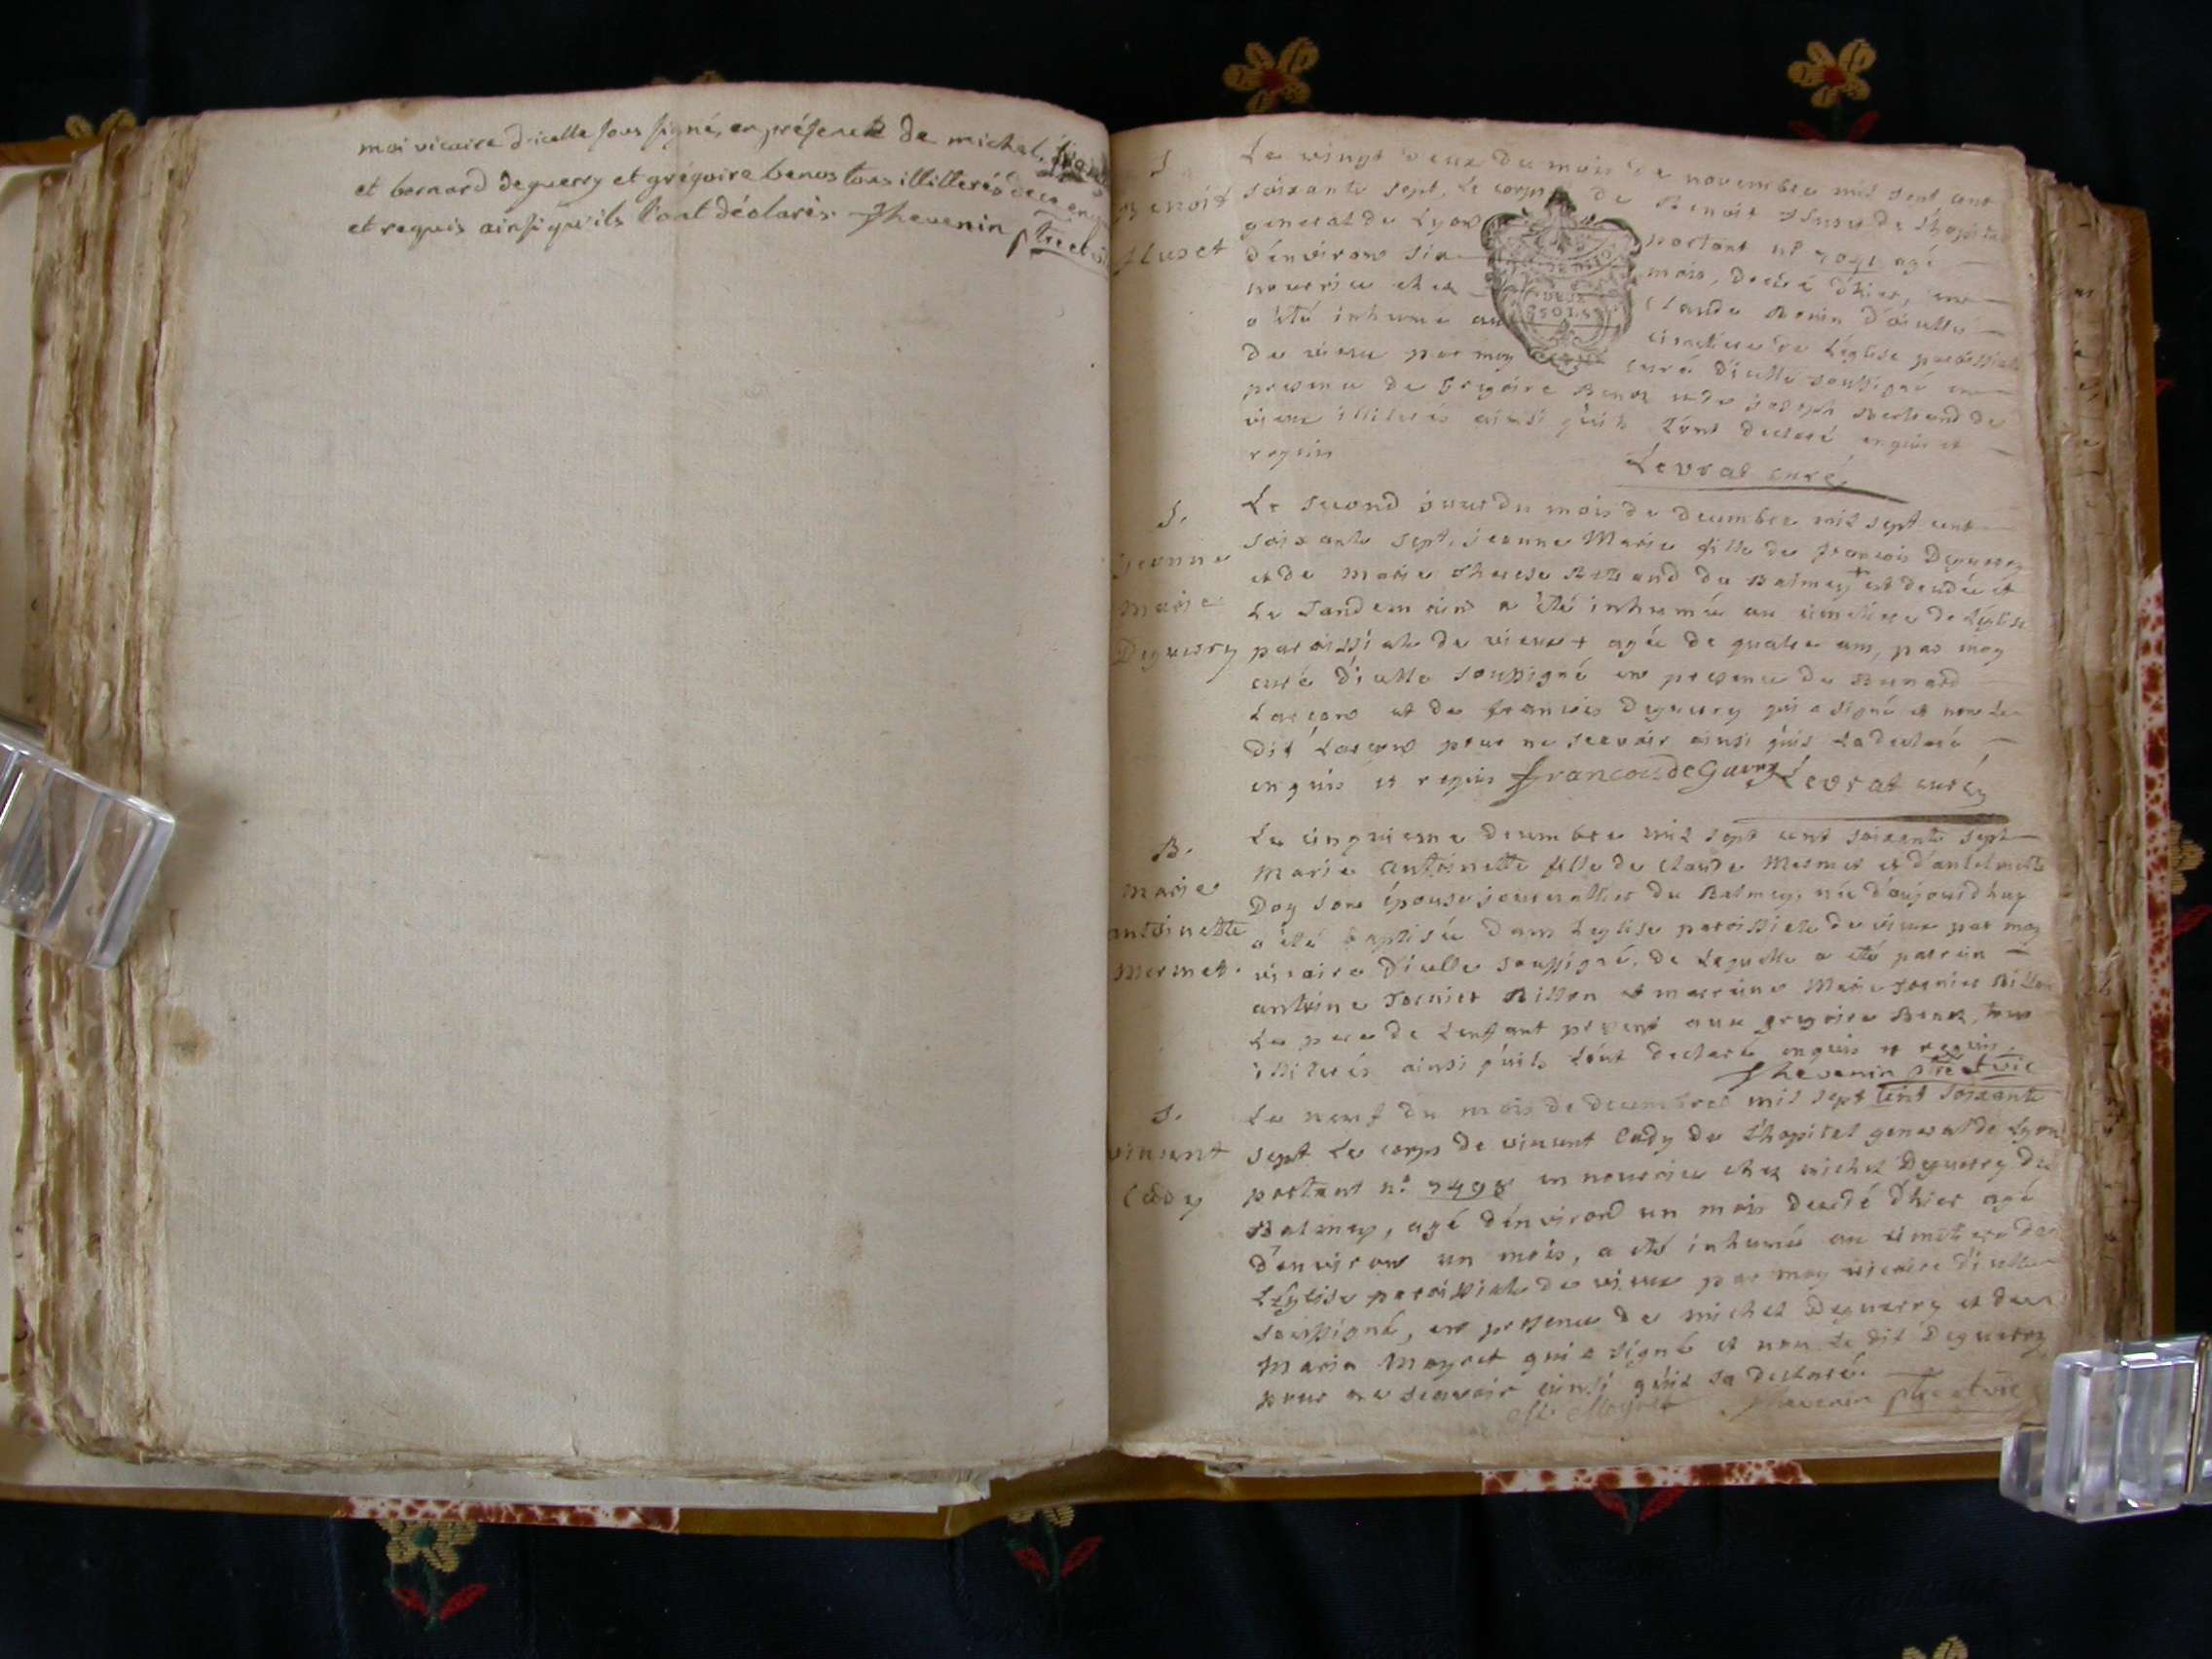 moi vicaire d'icelle sous signé, en présence de michel,
et bernard deguerry et grégoire benos tous illitterés de ce enquis
et requis ainsi qu'ils l'ont déclaré. Thevenin ptre et vic
S
Benoit
Le vingt deux du mois de novembre mil sept cent
soixante sept, Le corps de Benoit de L'hopital
general de Lyon portant n° agé
d'environ six mois, decédé d'hier, en
nourrice chez Claude Bonin d'oiulle
a été inhumé au cimetiere de L'eglise paroissiale
DEUX
SOLS
de vieu par moy curé d'icelle soussigné en
presence de Gregoire Benoz et de joseph Berthand de
vieu illiterés ainsi qu'ils L'ont declaré enquis et
requis
Levrat curé
S.
jeanne
marie
Deguerry
Le second jour du mois de decembre mil sept cent
soixante sept, jeanne Marie fille de francois Deguerry
et de marie therese du Balmey + est decedée et
Le Landemain a été inhumée au cimetiere de L'eglise
paroissiale de vieu + agée de quatre ans, par moy
curé d'icelle soussigné en presence de Bernard
Larcon et de francois Deguerry qui a signé et non Le
dit Larcon pour ne scavoir ainsi qu'il La declaré
enquis et requis francois de Guerry Levrat curé
B.
marie
antoinette
mermet.
Le cinquieme decembre mil sept cent soixante sept
Marie antoinette fille de claude Mermet et d'antelmette
Doy son épouse journallier du Balmey, née d'aujourd'huy
a été baptisée dans Leglise paroissiale de vieu par moy
vicaire d'icelle soussigné. de Laquelle a été parrain
antoine et marraine Marie
Le pere de Lenfant present avec gregoire Benoz, tous
illiterés ainsi qu'ils L'ont declaré enquis et requis.
Thevenin ptre et vic
S.
vincent
Cady
Le neuf du mois de decembre mil sept cent soixante
sept Le corps de vincent Cady de L'hopital general de Lyon
portant n° 7498 en nourrice chez michel Deguerry du
Balmey, agé d'environ un mois decedé d'hier agé
d'environ un mois, a été inhumé au cimetiere de
L'Eglise paroissiale de vieu par moy vicaire d'icelle
soussigné, en presence de michel Deguerry et de
Marin Moyret qui a signé et non Le dit Deguerry
pour ne scavoir ainsi qu'il La declaré.
M. Moyret Thevenin ptre et vic